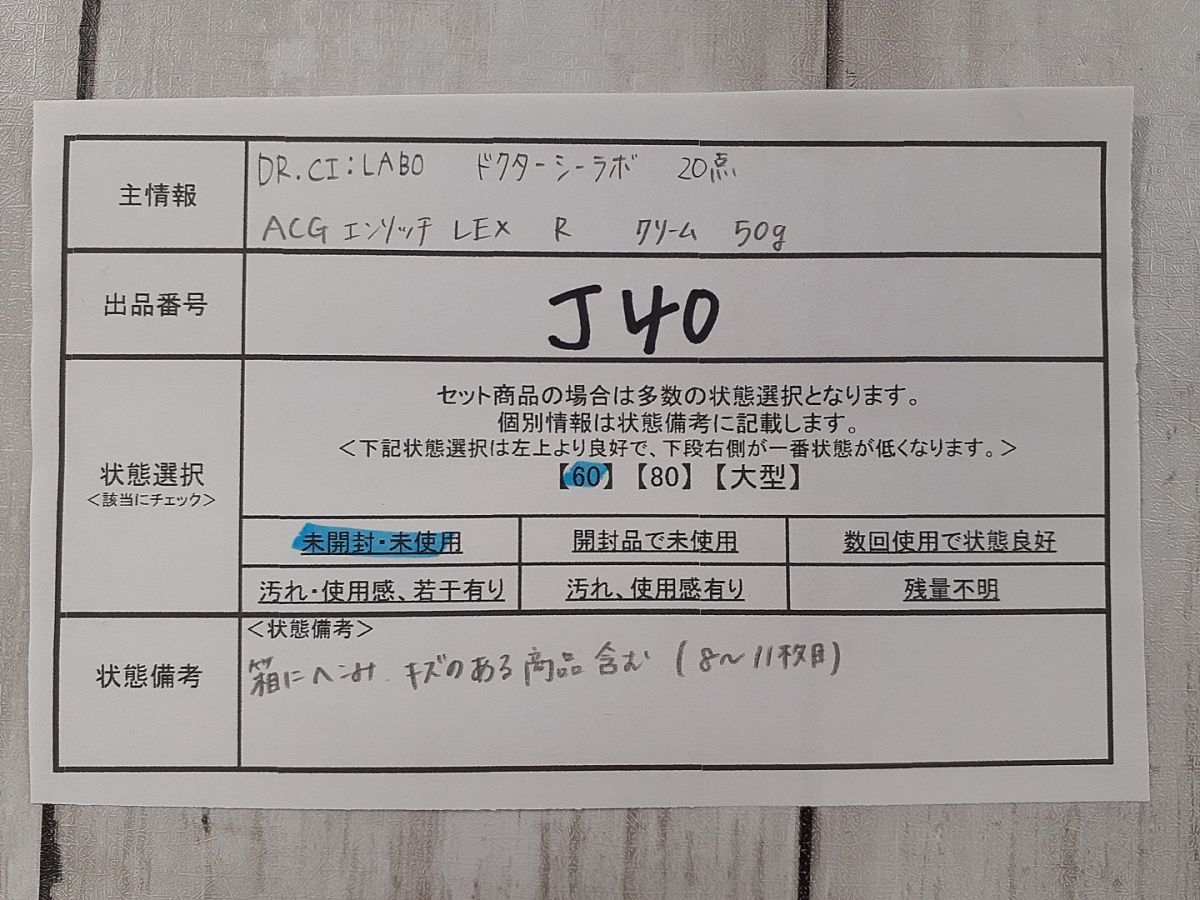 主情報
DR.CI:LABO ドクターシーラボ 20点
ACG エンリッチ LEX R クリーム 50g
出品番号
J40
状態選択
<該当にチェック>
セット商品の場合は多数の状態選択となります。
個別情報は状態備考に記載します。
<下記状態選択は左上より良好で、下段右側が一番状態が低くなります。>
【60】【80】【大型】
未開封・未使用 開封品で未使用 数回使用で状態良好
汚れ・使用感、若干有り 汚れ、使用感有り 残量不明
状態備考
<状態備考>
箱にヘコみ、キズのある商品含む (8〜11枚目)